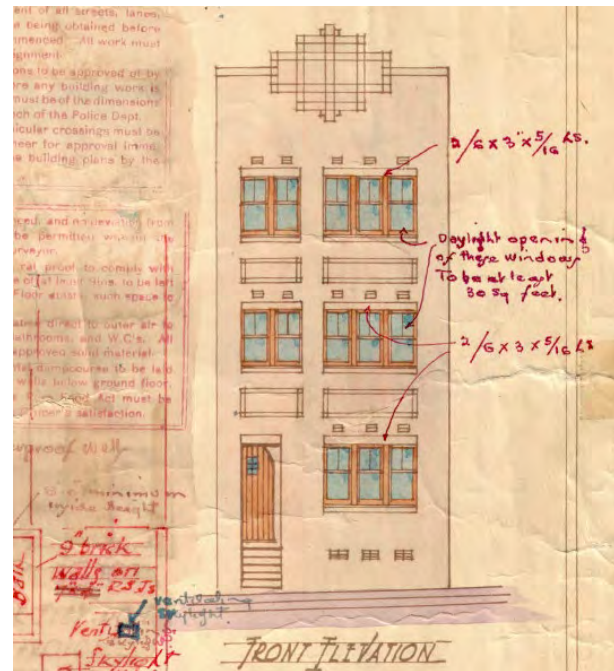 ent of all streets, lanes,
being obtained before
mmenced. All work must
ignment.
ons to be approved of by
re any building work is
must be of the dimensions
ch of the Police Dept.
icular crossings must be
neer for approval
e building plans by the
ced, and no deviation from
be permitted without the
rveyor.
proof to comply with
to be left
such space to
direct to outer air to
throoms, and W.C's. All
approved solid material.
dampcourse to be laid
walls below ground floor.
Act must be
satisfaction.
proof
minimum
inside height
9" brick
walls on
RSJs
ventilating
skylight.
Vent
skylight
2/6 x 3" x 5/16 LS.
Daylight opening
of these windows
To be at least
30 sq feet.
2/6 x 3 x 5/16 LS
FRONT ELEVATION